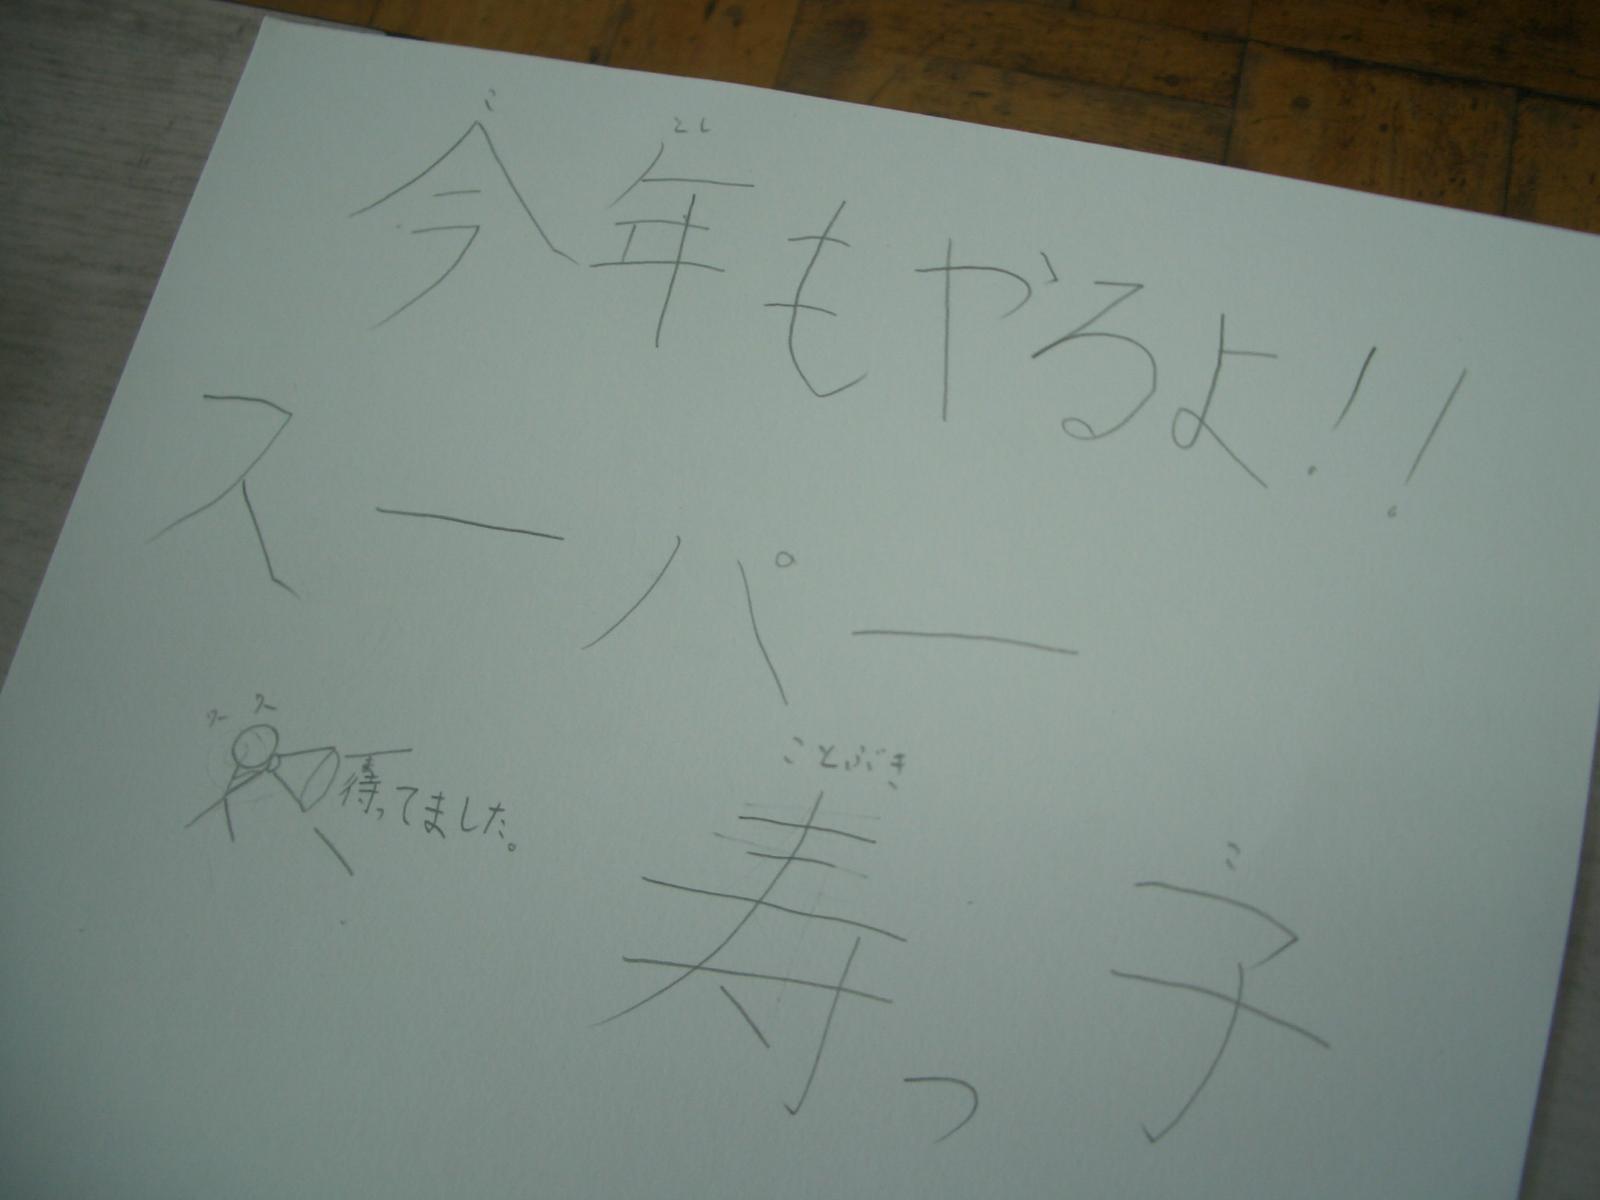 こ とし
今年もやるよ!!
スーパー
ワー ワー
待ってました。
ことぶき こ
寿っ子